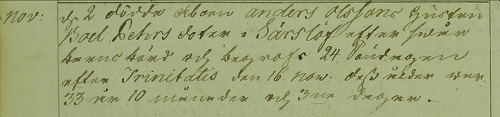 Nov: d. 2 dödde Åboen anders olssons hustru
Boel Pehrs doter i Särslöf efter
barns börd och begrofs 24. söndagen
efter Trinitatis den 16. nov. dess ålder war
33 år 10 månader och 3ne dagar.